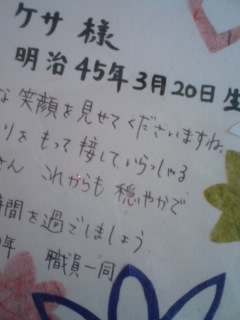 ケサ 様
明治45年3月20日生
な笑顔を見せてくださいますね。
りをもって接していらっしゃる
さん これからも 穏やかで
時間を過ごしましょう
年 職員一同